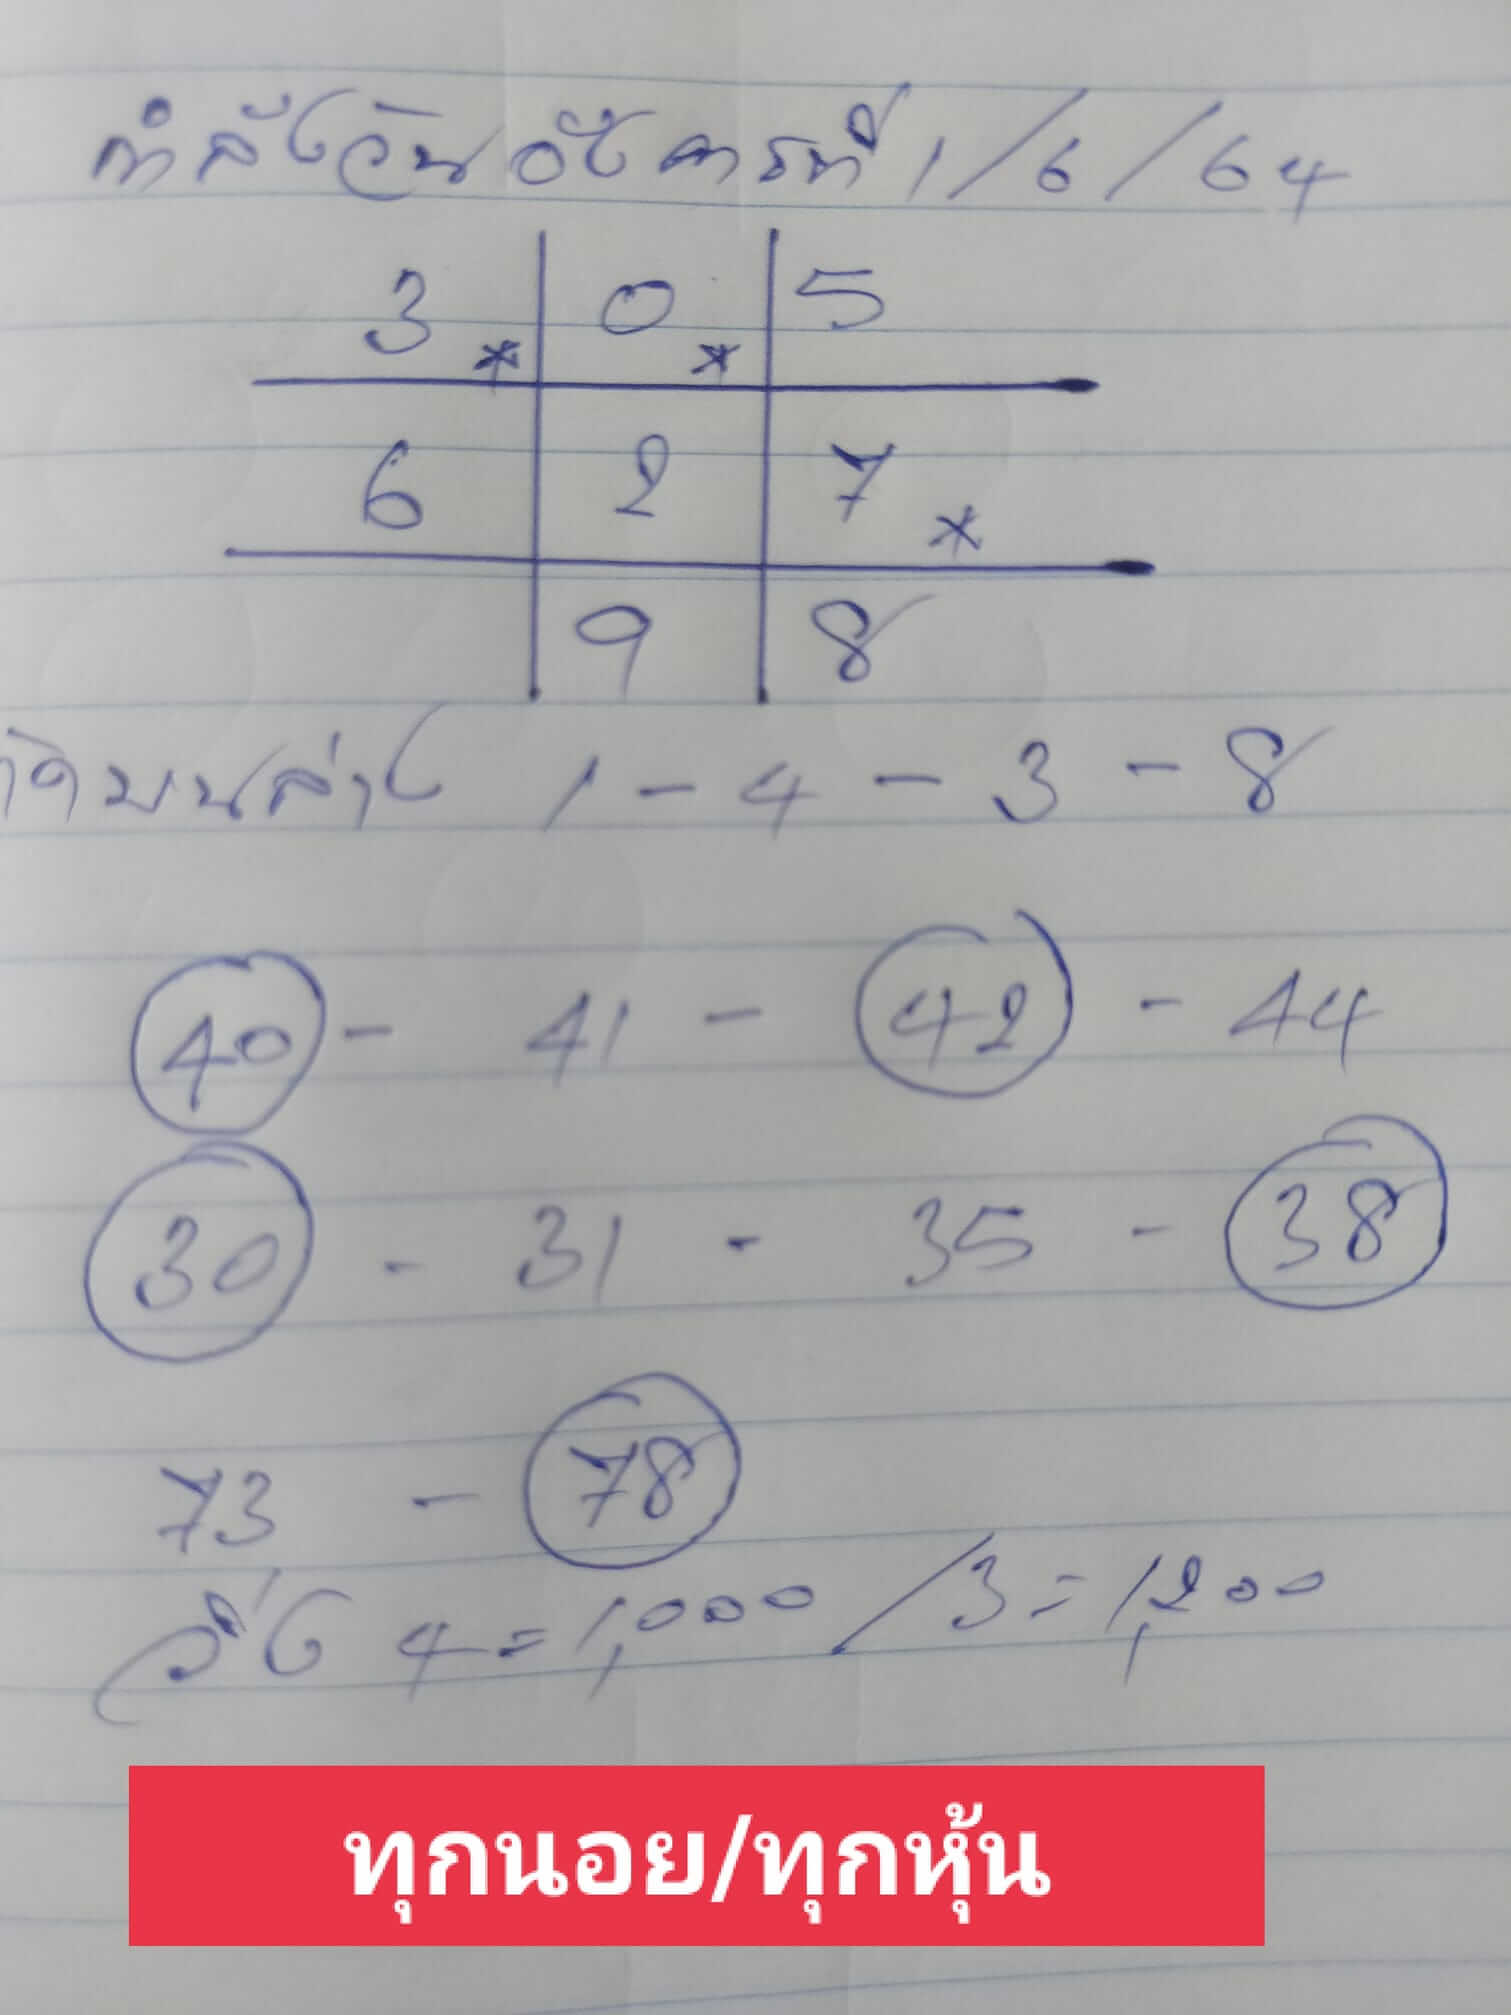 กำลังวันอังคารที่ 1/6/64
3* 0* 5
6 2 7*
9 8
บนล่าง 1 - 4 - 3 - 8
40 - 41 - 42 - 44
30 - 31 - 35 - 38
73 - 78
วิ่ง 4 = 1,000 / 3 = 1,200
ทุกนอย/ทุกหุ้น